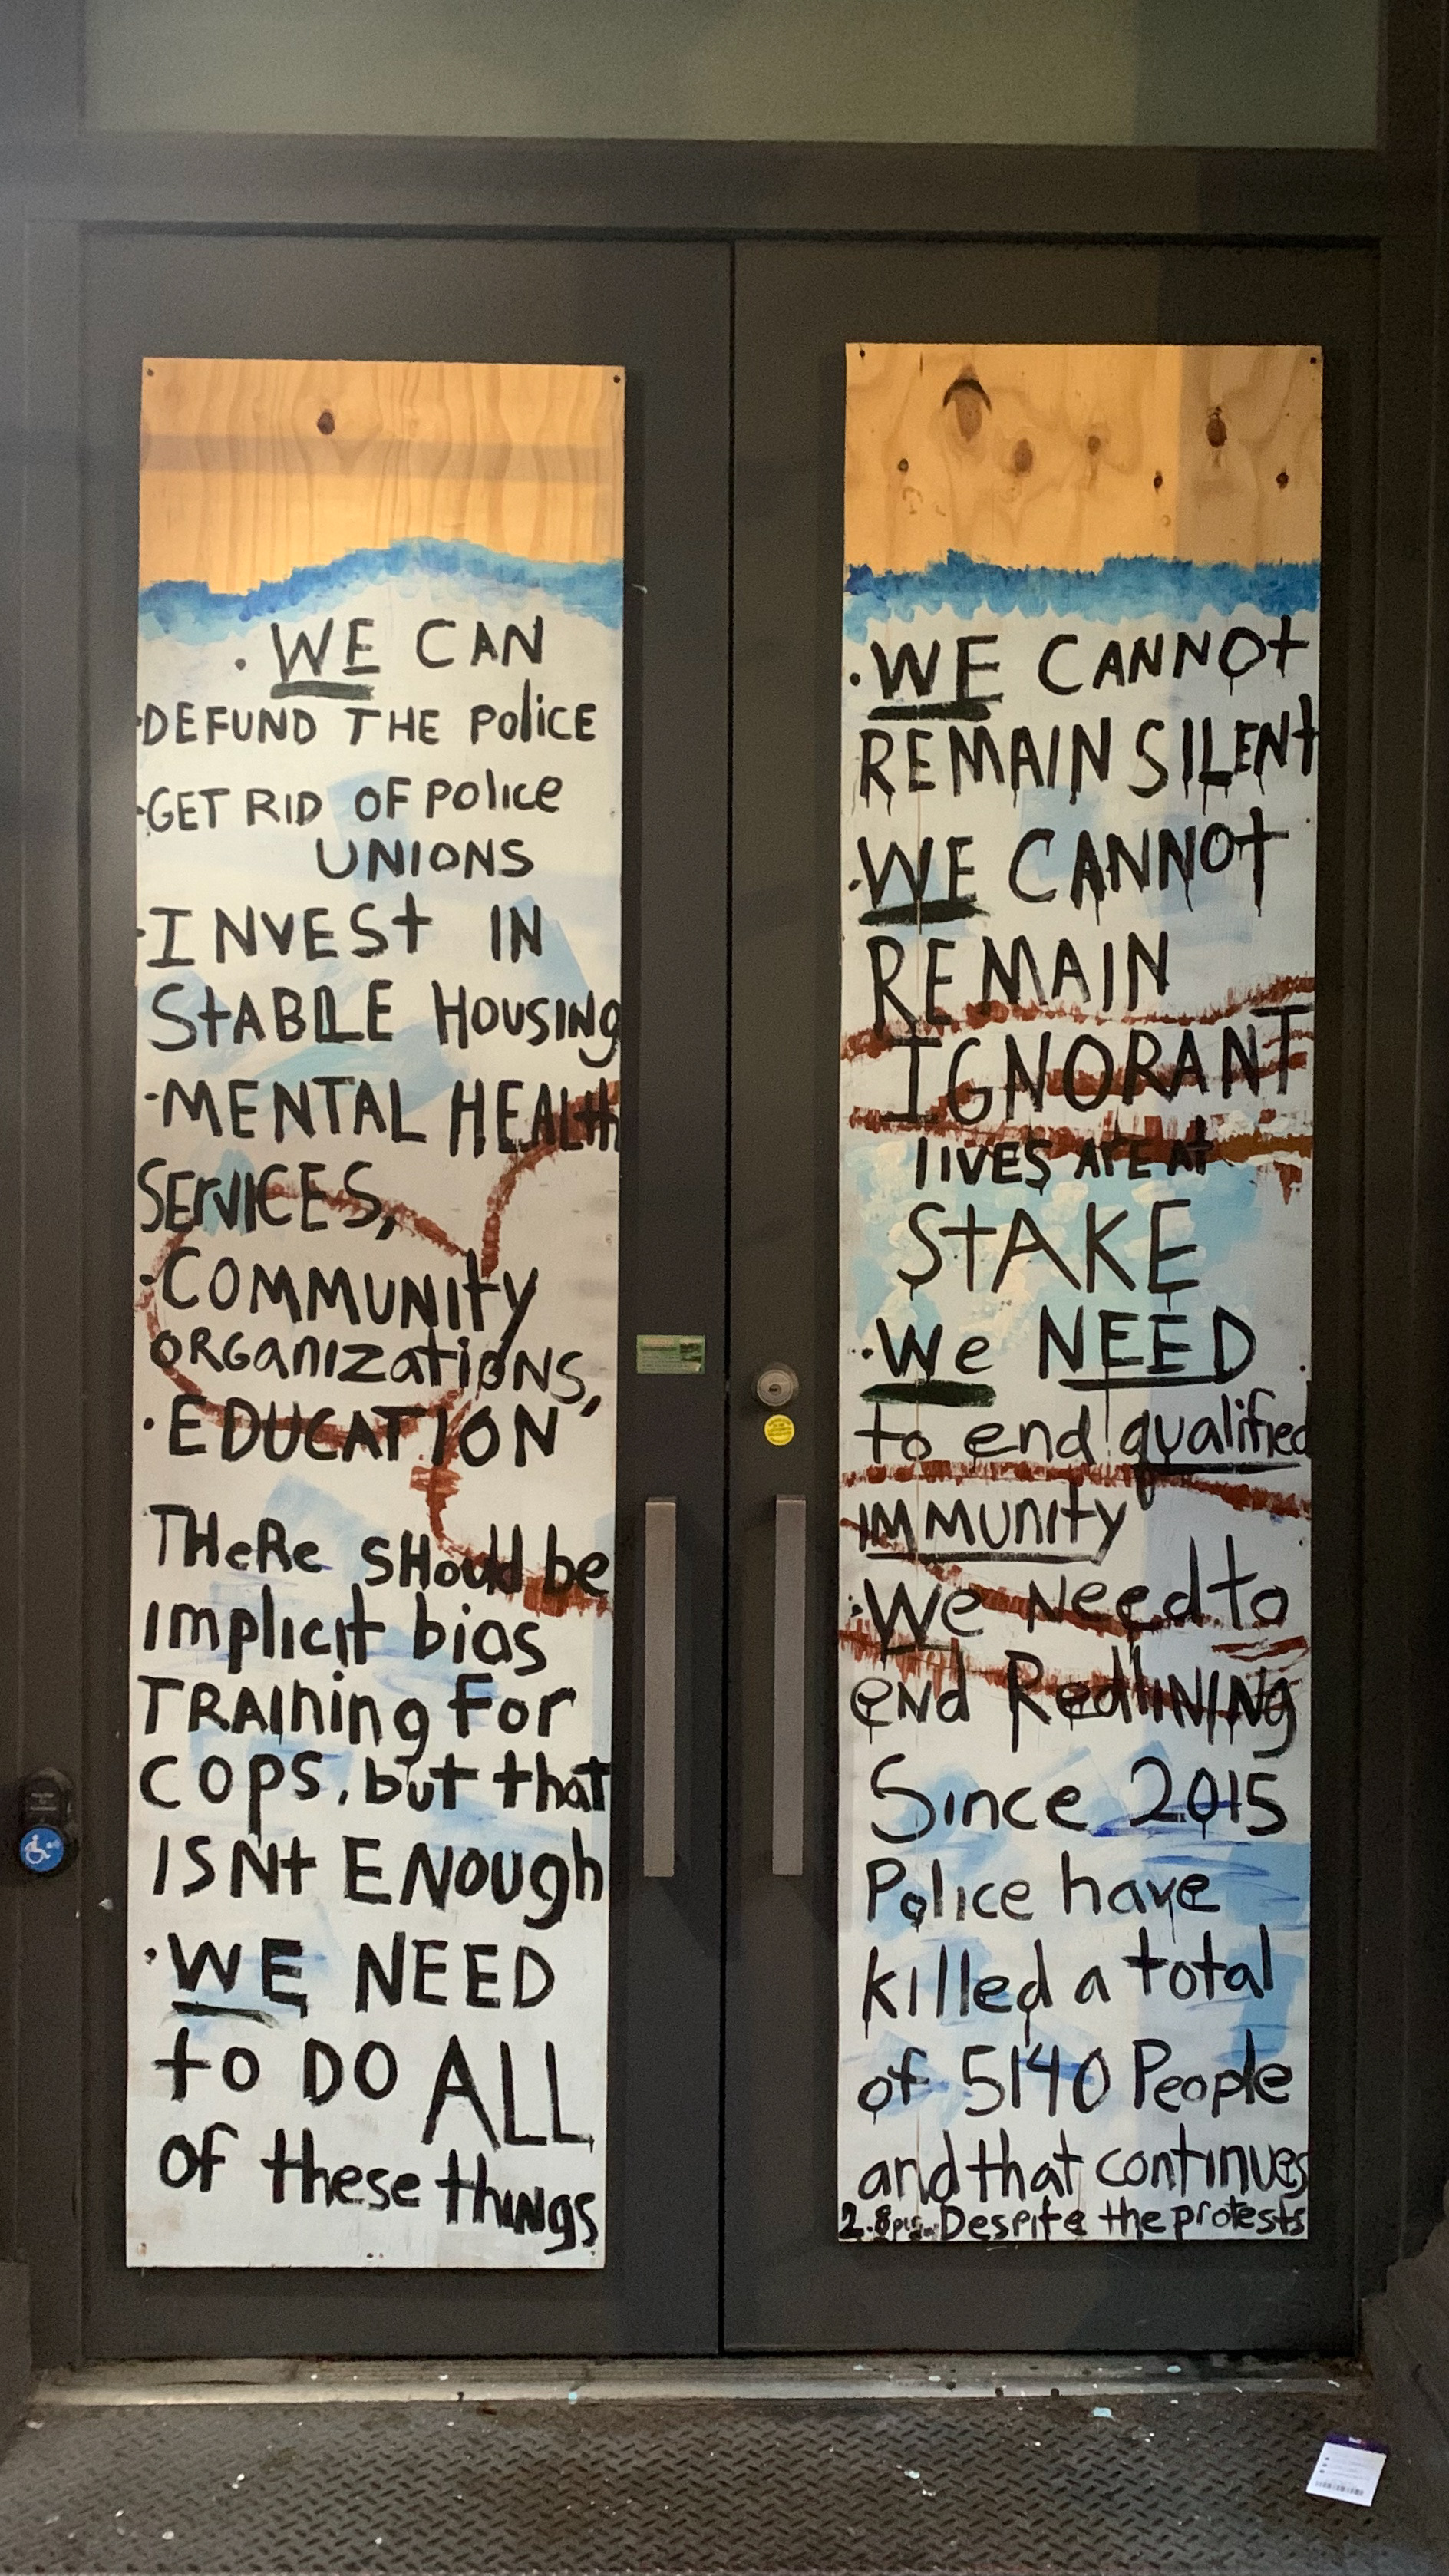 . WE CAN
·DEFUND THE POlicE
·GET RID OF POlice
UNIONS
·INVESt IN
StABLE HOUSING
·MENTAL HEALth
SErvICES,
·COMMUNIty
ORGanizatiONS,
·EDUCATION
THeRe SHould be
implicit bias
TRAIning For
COPS. but that
ISNt ENOUgh
·WE NEED
to DO ALL
of these thINgs
·WE CANNOt
REMAIN SILENt
·WE CANNOt
REMAIN
IGNORANT
lIVES ArE At
StAKE
·We NEED
to end qualified
IMMUnity
·We Need to
eNd RedlININg
Since 2015
Police have
killed a total
of 5140 People
and that continues
Despite the protests